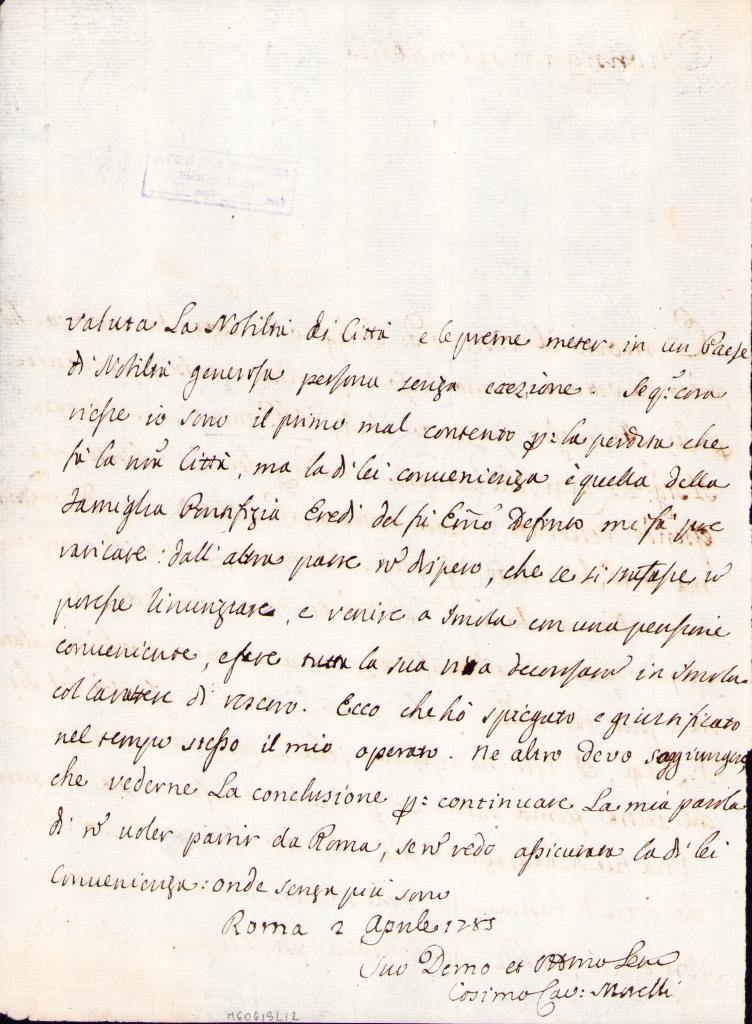 valuta La Nobiltà di Città e le preme meter in un Paese
di Nobiltà generosa persona senza eccezione. Seqᵉ: cora
richse io sono il primo mal contento p: la perdita che
fà la nrã Città, ma la di lei convenienza è quella della
famiglia Pontifizia Eredi del fù Em̃o Defunto mi fà pre
varicare: dall' altra parte nõ dispero, che se si trattasse nõ
potesse rinunziare, e venire a Imola con una pensione
conveniente, essere tutta la sua vita decorosam̃ in Imola
col carattere di vescovo. Ecco che hò spiegato e giustificato
nel tempo stesso il mio operato. Ne altro devo soggiungere,
che vederne La conclusione p: continuare La mia parola
di nõ voler partir da Roma, se nõ vedo assicurata la di lei
Convenienza: onde senza più sono
Roma 2 Aprile 1785
Suo Devmo et Obbmo Serv
Cosimo Cav: Morelli
MG0619L12